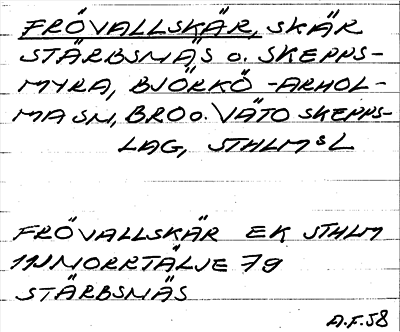 FRÖVALLSKÄR, SKÄR
STÄRBSNÄS o. SKEPPS-
MYRA, BJÖRKÖ-ARHOL-
MA SN, BRO o. VÄTÖ SKEPPS-
LAG, STHLMS L
FRÖVALLSKÄR EK STHLM
11J NORRTÄLJE 79
STÄRBSNÄS
A.F. 58